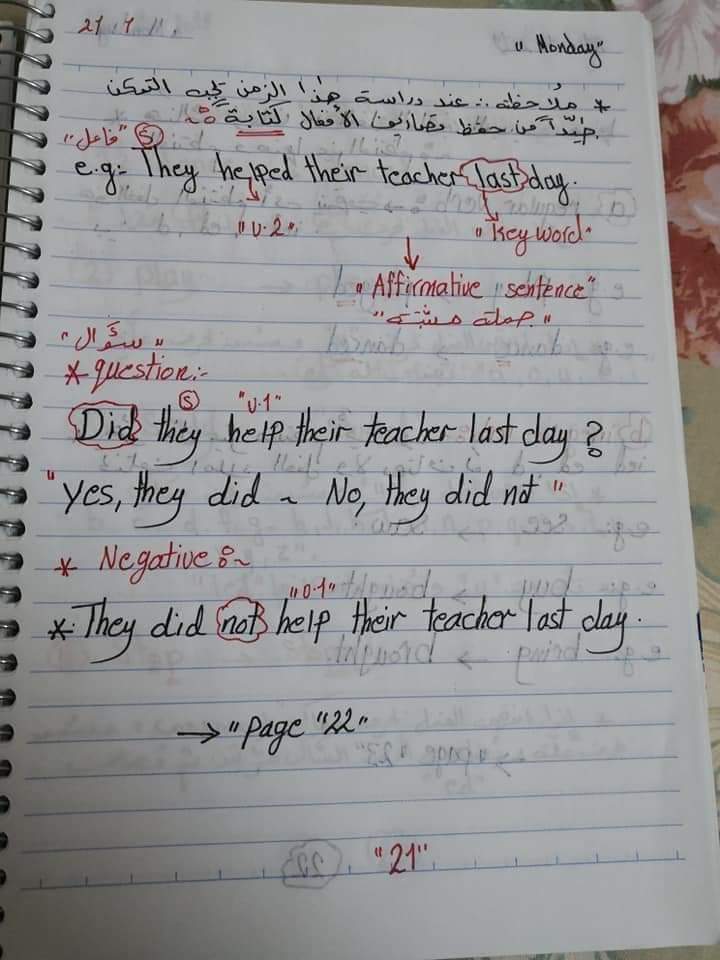 21
" Monday"
* ملاحظة :. عند دراسة هذا الزمن يجب التمكن
جيّداً من حفظ تصاريف الأفعال كتابةً
"فاعل" S
e.g:- They helped their teacher last day.
"v.2" "Key word"
" Affirmative sentence"
"جملة مثبتة"
"سؤال"
* question:-
S "v.1"
Did they help their teacher last day ?
"yes, they did ~ No, they did not "
* Negative :~
"v.1"
* They did not help their teacher last day.
→ "page "22"
"21"